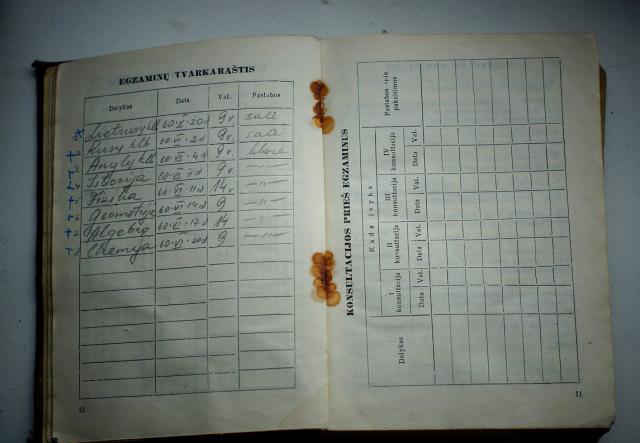 EGZAMINŲ TVARKARAŠTIS
Dalykas Data Val. Pastabos
Lietuvių klb 60.V.30d 9v. salė
Rusų klb 60.VI.2d 9v. salė
Anglų klb 60.VI.4d 9v. klasė
Istorija 60.VI.7d 9v. —"—
Fizika 60.VI.11d 14v —"—
Geometrija 60.VI.14d 9 —"—
Algebra 60.VI.17d 14 —"—
Chemija 60.VI.20d 9 —"—
10
KONSULTACIJOS PRIEŠ EGZAMINUS
Dalykas
Kada įvyks
I konsultacija
Data Val.
II konsultacija
Data Val.
III konsultacija
Data Val.
IV konsultacija
Data Val.
Pastabos apie pakeitimus
11